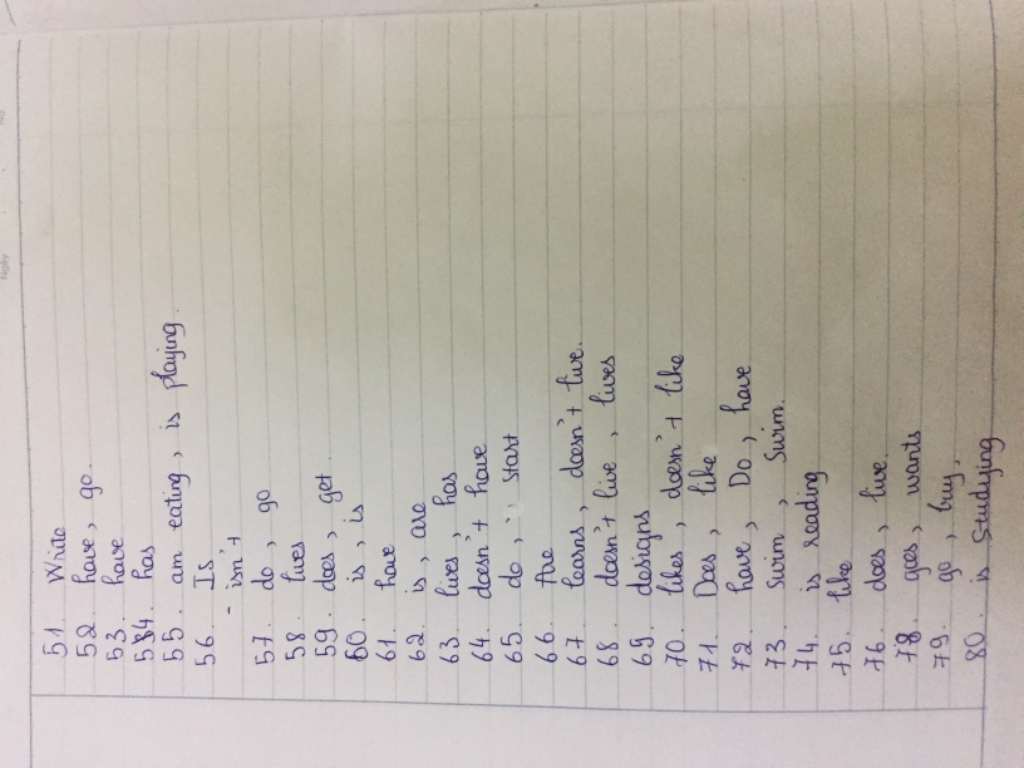 51. Write
52. have, go.
53. have
54. has
55. am eating, is playing.
56. Is
- isn't
57. do, go
58. lives
59. does, get.
60. is, is
61. have
62. is, are
63. lives, has
64. doesn't have
65. do, start
66. Are
67. learns, doesn't live.
68. doesn't live, lives
69. designs
70. likes, doesn't like
71. Does, like
72. have, Do, have
73. Swim, Swim.
74. is reading
75. like
76. does, live.
78. goes, wants
79. go, buy,
80. is Studying